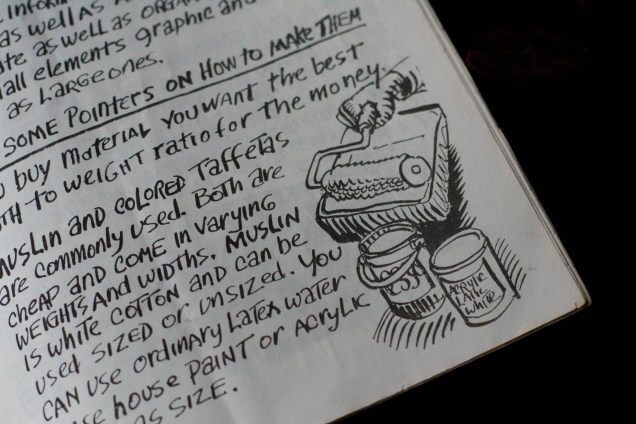 as well as
ate as well as ORGAN
all elements graphic and
as LARGE ONES.
SOME POINTERS ON HOW to MAKE THEM
buy material you want the best
to WEIGHT ratio for the money.
MUSLIN AND COLORED Taffetas
are commonly used. Both are
cheap and COME IN varying
WEIGHTS AND WIDTHS. MUSLIN
IS WHITE COTTON AND can be
used SIZED OR UNSIZED. YOU
CAN USE ORDINARY LATEX WATER
house PAINT or ACRYLIC
as SIZE.
ACRYLIC
LATEX
WHITE